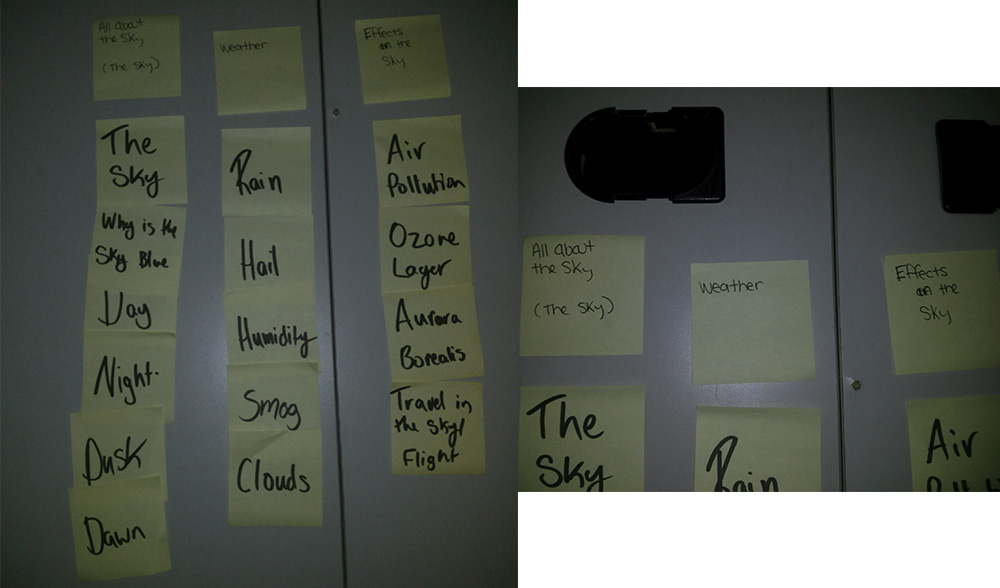 All about
the Sky
(The Sky)
The
Sky
Why is the
Sky Blue
Day
Night.
Dusk
Dawn
Weather
Rain
Hail
Humidity
Smog
Clouds
Effects
on the
Sky
Air
Pollution
Ozone
Layer
Aurora
Borealis
Travel in
the Sky/
Flight
All about
the Sky
(The Sky)
The
Sky
Weather
Rain
Effects
on the
Sky
Air